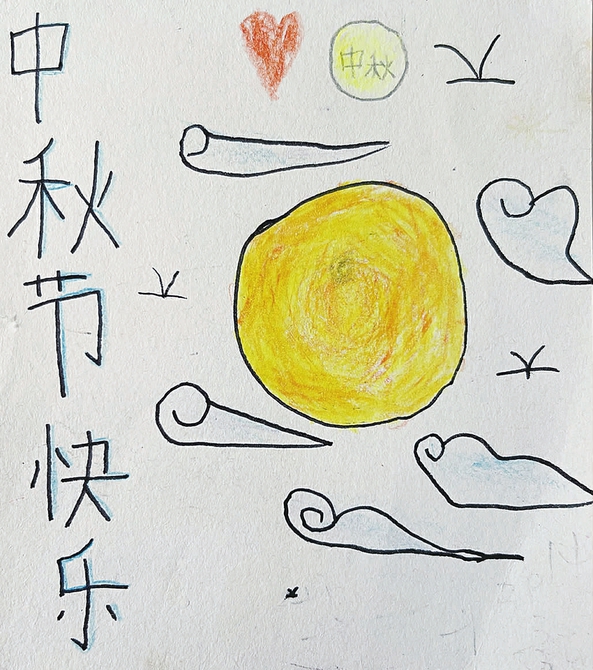 中秋节快乐
中秋